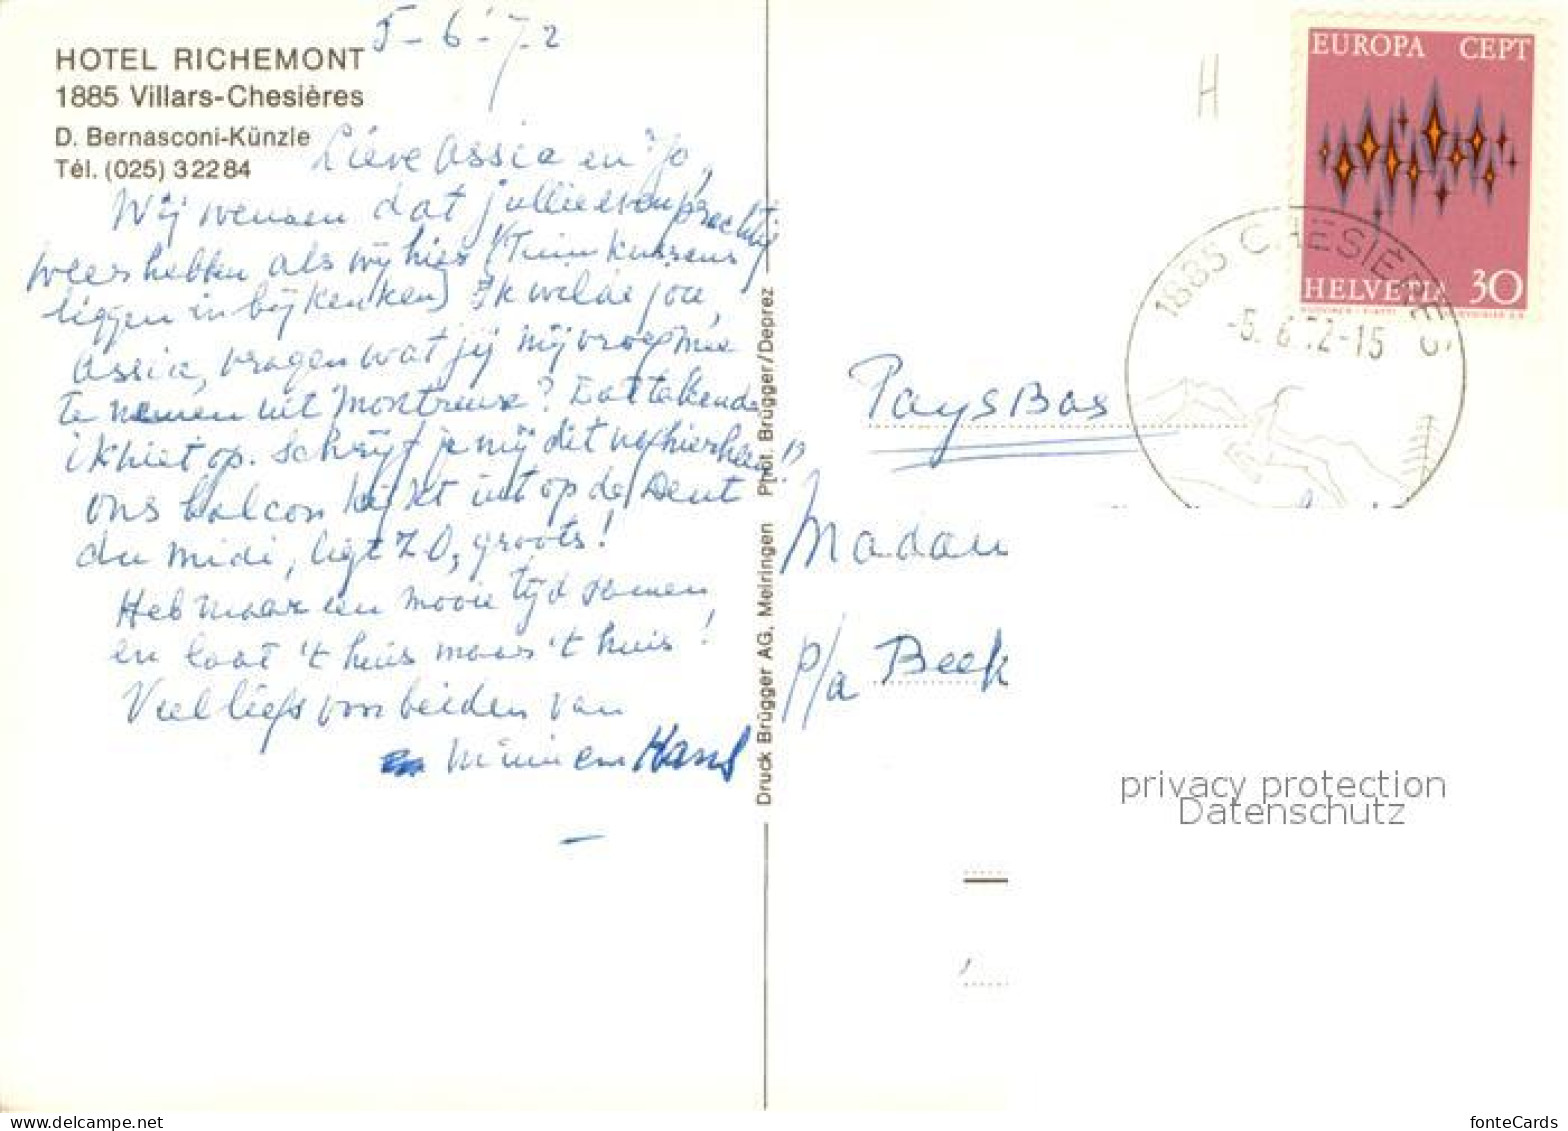 5-6-'72
HOTEL RICHEMONT
1885 Villars-Chesières
D. Bernasconi-Künzle
Tél. (025) 3 22 84
Lieve Assia en Jo,
Wij wensen dat jullie even prachtig
weer hebben als wij hier (Tuinkussens
liggen in bijkeuken) Ik wilde jou,
Assia, vragen wat jij mij vroeg mee
te nemen uit Montreux? Dat tekende
ik niet op. Schrijf je mij dit nog hierheen?
Ons balcon kijkt uit op de Dent
du Midi, ligt Z O, groots!
Heb maar een mooie tijd samen
en laat 't huis maar 't huis!
Veel liefs voor beiden van
en Hans
Druck Brügger AG, Meiringen Phot. Brügger/Deprez
H
EUROPA CEPT
HELVETIA 30
1885 CHESIÈRES
-5. 6. 72-15
Pays Bas
Madam
p/a Beek
privacy protection
Datenschutz
fonteCards